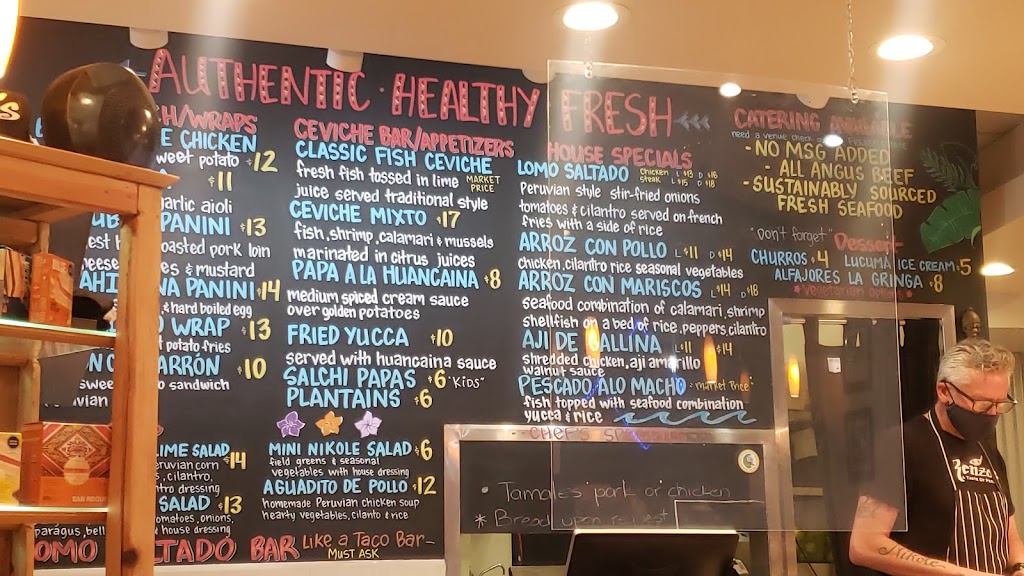 AUTHENTIC · HEALTHY FRESH
H/WRAPS
E CHICKEN
weet potato $12
$11
garlic aioli
PANINI $13
oasted pork loin
& mustard
NA PANINI $14
& hard boiled egg
WRAP $13
potato fries
ARRÓN $10
sandwich
LIME SALAD $14
eruvian corn
cilantro,
tro dressing
SALAD $13
omatoes, onions,
house dressing
paragus, bell
OMO TADO BAR Like a Taco Bar-
MUST ASK
CEVICHE BAR/APPETIZERS
CLASSIC FISH CEVICHE
fresh fish tossed in lime MARKET PRICE
juice served traditional style
CEVICHE MIXTO $17
fish, shrimp, calamari & mussels
marinated in citrus juices
PAPA A LA HUANCAINA $8
medium spiced cream sauce
over golden potatoes
FRIED YUCCA $10
served with huancaina sauce
SALCHI PAPAS $6 "KIDS"
PLANTAINS $6
MINI NIKOLE SALAD $6
field greens & seasonal
vegetables with house dressing
AGUADITO DE POLLO $12
homemade Peruvian chicken soup
hearty vegetables, cilanto & rice
HOUSE SPECIALS
LOMO SALTADO
Chicken L $13 D $16
Steak L $15 D $18
Peruvian style stir-fried onions
tomatoes & cilantro served on french
fries with a side of rice
ARROZ CON POLLO L $11 D $14
chicken cilantro rice seasonal vegetables
ARROZ CON MARISCOS L $14 D $18
seafood combination of calamari, shrimp
shellfish on a bed of rice, peppers, cilantro
AJI DE GALLINA L $11 $14
shredded chicken, aji amarillo
walnut sauce
PESCADO ALO MACHO "market Price"
fish topped with seafood combination
yucca & rice
CHEF'S
• Tamales pork or chicken
* Bread upon request
CATERING AVAILABLE
need a venue check
-NO MSG ADDED
- ALL ANGUS BEEF
-SUSTAINABLY SOURCED
FRESH SEAFOOD
"Don't forget" Dessert
CHURROS $4 LUCUMA ICE CREAM $5
ALFAJORES LA GRINGA $8
*vegetarian options*
TASTE OF
Nikole